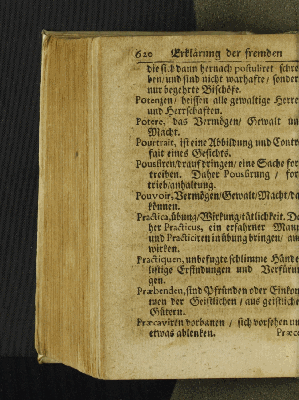 620 Erklärung der fremden
die sich dann hernach postuliret schre
ben/ und sind nicht warhafte/ sonder
nur begehrte Bischöfe.
Potenzen/ heissen alle gewaltige Herre
und Herrschaften.
Potere, das Vermögen/ Gewalt un
Macht.
Pourtrait, ist eine Abbildung und Contr
fait eines Gesichts.
Poussiren/ drauf dringen/ eine Sache for
treiben. Daher Poussirung / for
trieb/anhaltung.
Pouvoir, Vermögen/Gewalt/Macht/da
können.
Practica, übung/Wirkung/tätlichkeit. Da
her Practicus, ein erfahrner Mann
und Practiciren in übung bringen/ au
wirken.
Practiquen, unbefugte schlimme Hände
listige Erfindungen und Verfürun
gen.
Præbenden, sind Pfründen oder Einkom
men der Geistlichen / aus geistliche
Gütern.
Præcaviren vorbauen / sich vorsehen un
etwas ablenken. Præco